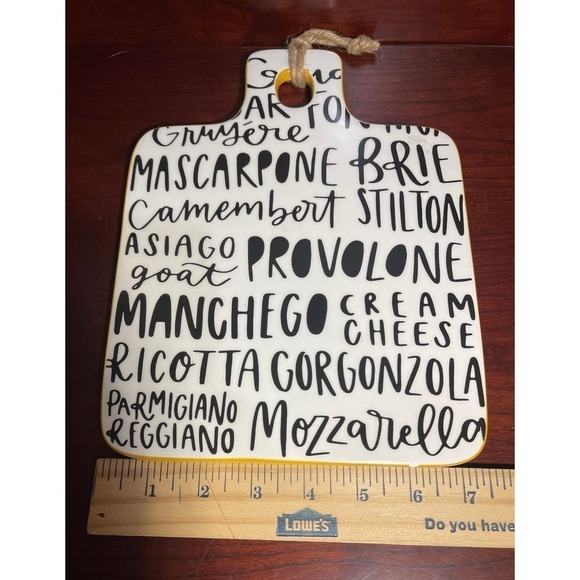 Gruyére
MASCARPONE BRIE
Camembert STILTON
ASIAGO
goat PROVOLONE
MANCHEGO CREAM
CHEESE
RICOTTA GORGONZOLA
PARMIGIANO
REGGIANO Mozzarella
1 2 3 4 5 6 7
LOWE'S Do you have